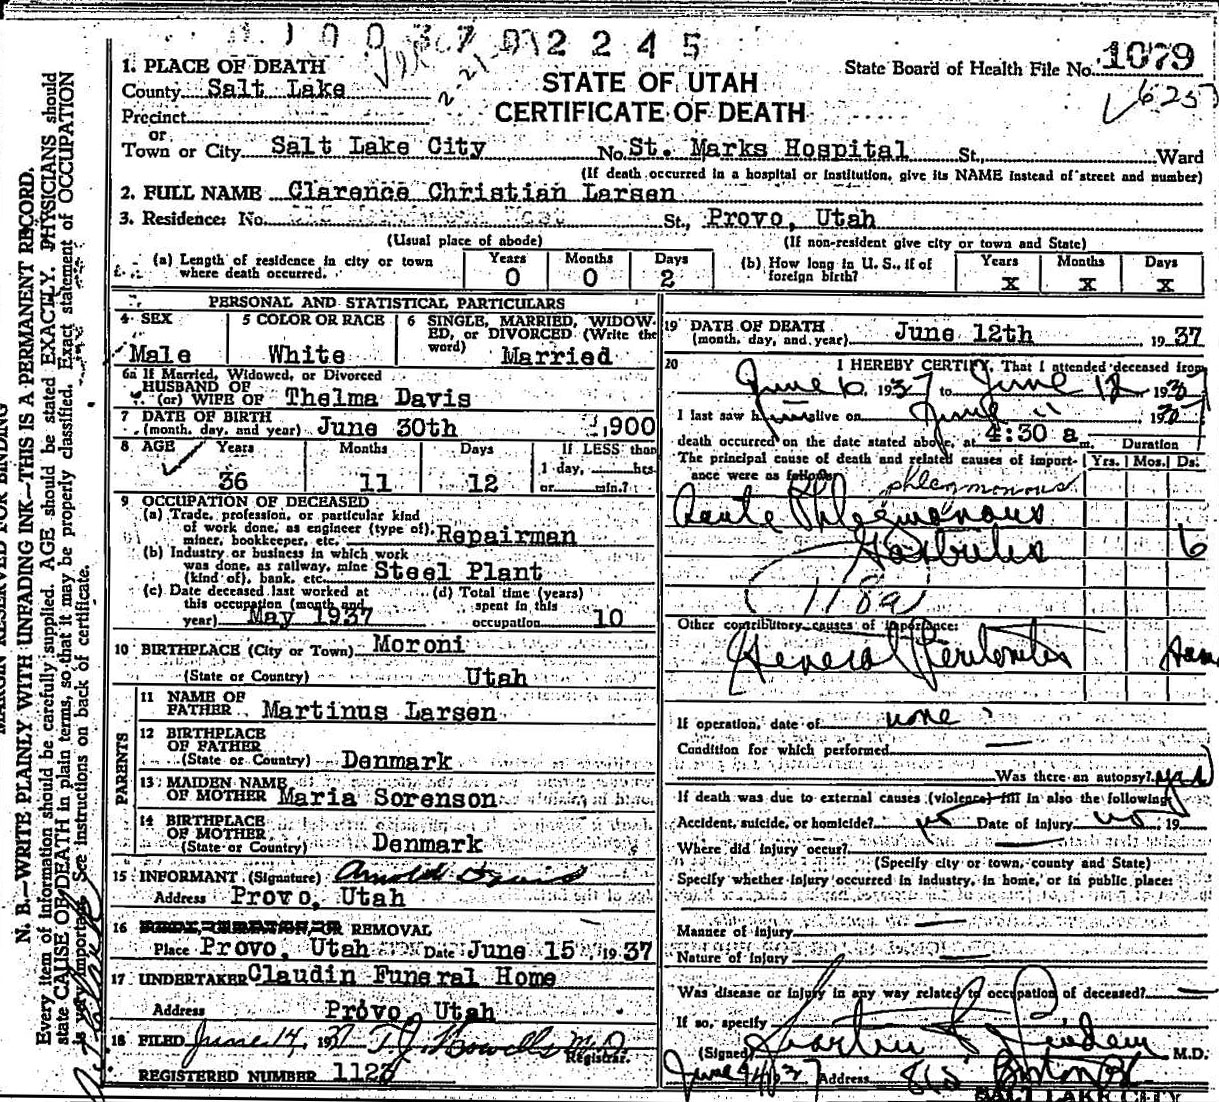 2245
1. PLACE OF DEATH
County Salt Lake
STATE OF UTAH
CERTIFICATE OF DEATH
State Board of Health File No. 1079
625
Precinct
or
Town or City Salt Lake City No. St. Marks Hospital St., Ward
(If death occurred in a hospital or institution, give its NAME instead of street and number)
2. FULL NAME Clarence Christian Larsen
3. Residence: No. St., Provo, Utah
(Usual place of abode) (If non-resident give city or town and State)
(a) Length of residence in city or town where death occurred. Years 0 Months 0 Days 2
(b) How long in U. S., if of foreign birth? Years x Months x Days x
PERSONAL AND STATISTICAL PARTICULARS
4 SEX Male
5 COLOR OR RACE White
6 SINGLE, MARRIED, WIDOWED, OR DIVORCED (Write the word) Married
6a If Married, Widowed, or Divorced
HUSBAND OF
(or) WIFE OF Thelma Davis
7 DATE OF BIRTH
(month, day, and year) June 30th 1,900
8 AGE Years 36 Months 11 Days 12 If LESS than 1 day, hrs. or min.?
9 OCCUPATION OF DECEASED
(a) Trade, profession, or particular kind
of work done, as engineer (type of),
miner, bookkeeper, etc. Repairman
(b) Industry or business in which work
was done, as railway, mine
(kind of), bank, etc. Steel Plant
(c) Date deceased last worked at
this occupation (month and
year) May 1937
(d) Total time (years)
spent in this
occupation 10
10 BIRTHPLACE (City or Town) Moroni
(State or Country) Utah
PARENTS
11 NAME OF
FATHER Martinus Larsen
12 BIRTHPLACE
OF FATHER
(State or Country) Denmark
13 MAIDEN NAME
OF MOTHER Maria Sorenson
14 BIRTHPLACE
OF MOTHER
(State or Country) Denmark
15 INFORMANT (Signature) Arnold Davis
Address Provo, Utah
16 REMOVAL
Place Provo, Utah Date June 15, 1937
17 UNDERTAKER Claudin Funeral Home
Address Provo, Utah
18 FILED June 14, 1937 T. J. Howells M.D.
Registrar.
REGISTERED NUMBER 1123
19 DATE OF DEATH
(month, day, and year) June 12th 1937
20 I HEREBY CERTIFY, That I attended deceased from
June 10, 1937 to June 12 1937
I last saw him alive on June 11 1937
death occurred on the date stated above, at 4:30 a m. Duration
The principal cause of death and related causes of importance were as follows: Yrs. Mos. Ds.
phlegmonous
Acute Phlegmonous
Gastritis 6
118a
Other contributory causes of importance:
General Peritonitis
If operation, date of none
Condition for which performed
Was there an autopsy? yes
If death was due to external causes (violence) fill in also the following:
Accident, suicide, or homicide? no Date of injury no 19
Where did injury occur?
(Specify city or town, county and State)
Specify whether injury occurred in industry, in home, or in public place:
Manner of injury
Nature of injury
Was disease or injury in any way related to occupation of deceased?
If so, specify
(Signed) M.D.
June 14 1937 Address
SALT LAKE CITY
MARGIN RESERVED FOR BINDING
N. B.—WRITE PLAINLY WITH UNFADING INK—THIS IS A PERMANENT RECORD.
Every item of information should be carefully supplied. AGE should be stated EXACTLY. PHYSICIANS should
state CAUSE OF DEATH in plain terms, so that it may be properly classified. Exact statement of OCCUPATION
is very important. See instructions on back of certificate.